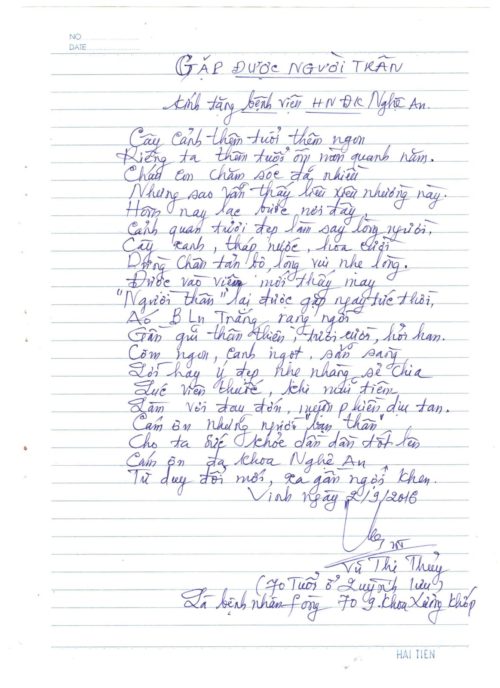 NO
DATE
GẶP ĐƯỢC NGƯỜI TRẦN
Kính tặng bệnh viện HNĐK Nghệ An.
Cây cảnh thêm tuổi thêm ngon
Riêng ta thêm tuổi ốm mòn quanh năm.
Cháu con chăm sóc đã nhiều
Nhưng sao vẫn thấy liêu xiêu nhường này.
Hôm nay lạc bước nơi đây
Cảnh quan tươi đẹp làm say lòng người.
Cây xanh, tháp nước, hoa cười
Dừng chân tản bộ, lòng vui nhẹ lòng.
Được vào viện mới thấy may
"Người thân" lại được gặp ngay tức thời,
Áo BLu Trắng rạng ngời
Gần gũi thân thiện, tươi cười, hỏi han.
Cơm ngon, canh ngọt, sẵn sàng
Lời hay ý đẹp nhẹ nhàng sẻ chia
Lúc viên thuốc, khi mũi tiêm
Làm vơi đau đớn, muộn phiền dịu tan.
Cám ơn những người "bạn thân"
Cho ta sức khỏe dần dần tốt lên
Cám ơn đa khoa Nghệ An
Tư duy đổi mới, xa gần ngợi khen.
Vinh ngày 2/9/2016
Vũ Thị Thủy
(70 Tuổi ở Quỳnh Lưu)
Là bệnh nhân fòng 70 9. Khoa Xương Khớp
HẢI TIẾN